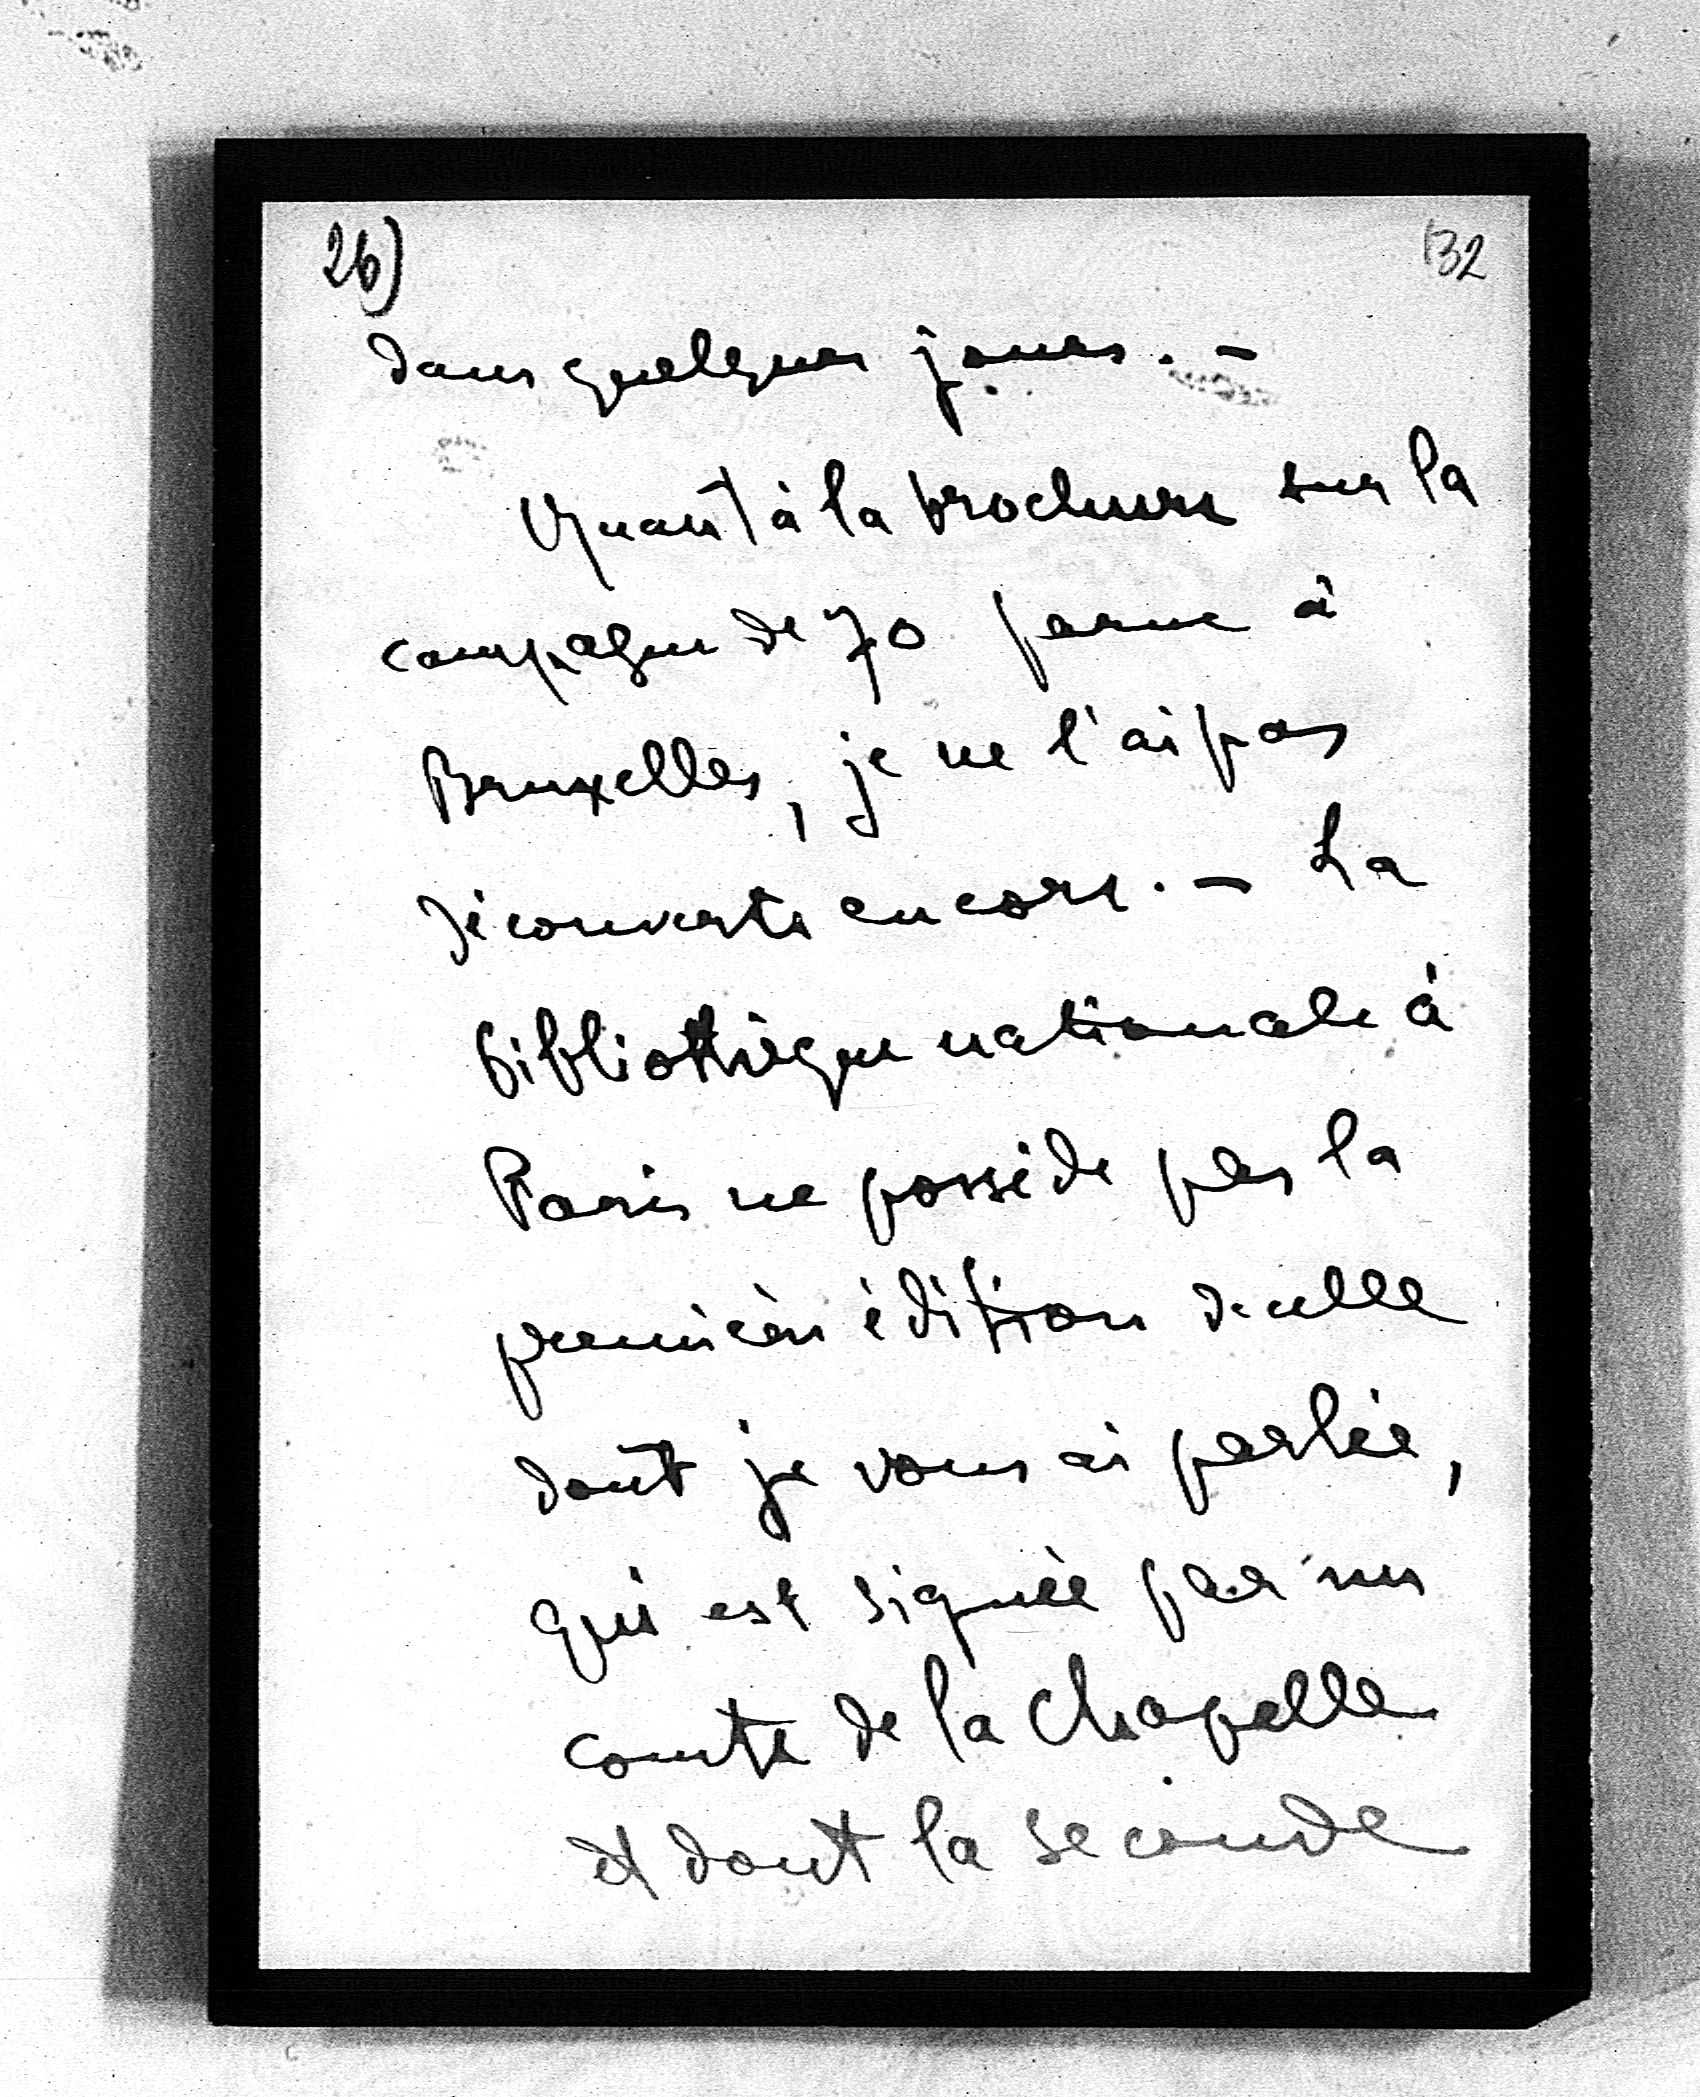 26)
132
dans quelques jours. —
Quant à la brochure sur la
campagne de 70 parue à
Bruxelles, je ne l'ai pas
découverte encore. — La
bibliothèque nationale à
Paris ne possède pas la
première édition de celle
dont je vous ai parlée,
qui est signée par un
comte de la Chapelle
et dont la seconde